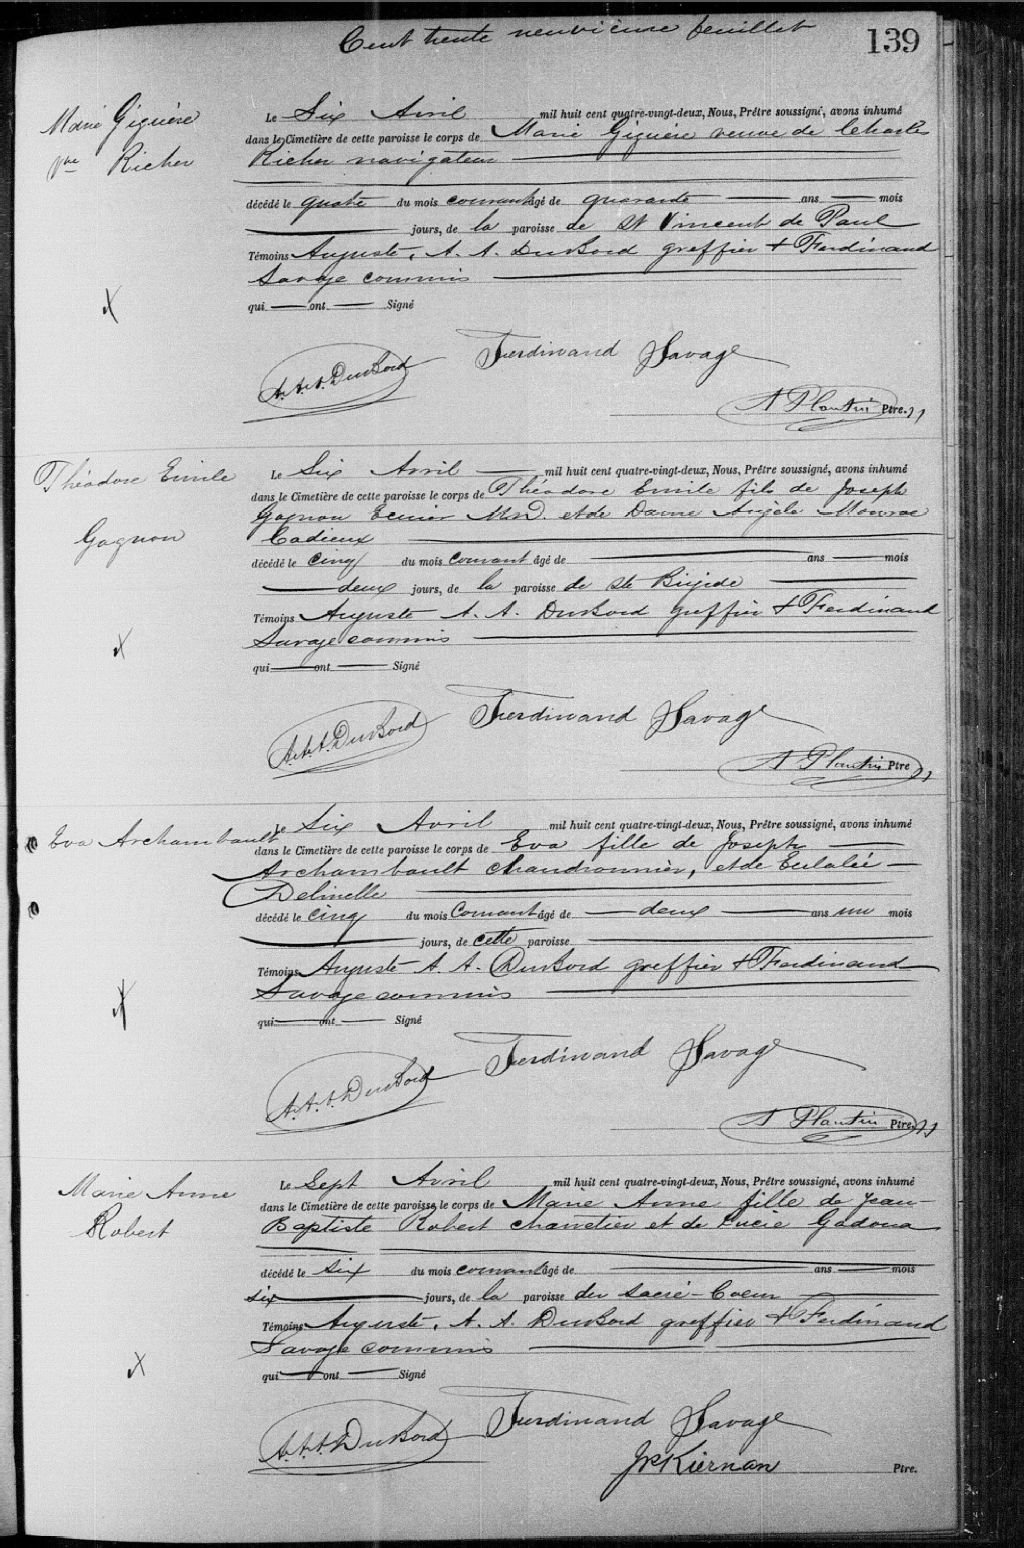 Cent trente neuvième feuillet
139
Marie Giguère
Vve Richer
Le Six Avril mil huit cent quatre-vingt-deux, Nous, Prêtre soussigné, avons inhumé
dans le Cimetière de cette paroisse le corps de Marie Giguère veuve de Charles
Richer navigateur
décédé le quatre du mois courant âgé de quarante ans mois
jours, de la paroisse de St Vincent de Paul
Témoins Auguste, A. A. DuBord greffier & Ferdinand
Savage commis
qui ont Signé
X
Ferdinand Savage
A. A. A. DuBord
A Plantin Ptre.
Théodore Emile
Gagnon
Le Six Avril mil huit cent quatre-vingt-deux, Nous, Prêtre soussigné, avons inhumé
dans le Cimetière de cette paroisse le corps de Théodore Emile fils de Joseph
Gagnon Ecuier M.D. et de Dame Angèle
Cadieux
décédé le cinq du mois courant âgé de ans mois
deux jours, de la paroisse de Ste Brijide
Témoins Auguste A. A. DuBord greffier & Ferdinand
Savage commis
qui ont Signé
X
Ferdinand Savage
A. A. A. DuBord
A Plantin Ptre
Eva Archambault
Le Six Avril mil huit cent quatre-vingt-deux, Nous, Prêtre soussigné, avons inhumé
dans le Cimetière de cette paroisse le corps de Eva fille de Joseph
Archambault chaudronnier, et de Eulalie
Delinelle
décédé le cinq du mois Courant âgé de deux ans un mois
jours, de cette paroisse
Témoins Auguste A. A. DuBord greffier & Ferdinand
Savage commis
qui ont Signé
X
Ferdinand Savage
A. A. A. DuBord
A Plantin Ptre.
Marie Anne
Robert
Le Sept Avril mil huit cent quatre-vingt-deux, Nous, Prêtre soussigné, avons inhumé
dans le Cimetière de cette paroisse, le corps de Marie Anne fille de Jean-
Baptiste Robert charretier et de Lucie Gadoua
décédé le six du mois courant âgé de ans mois
six jours, de la paroisse du Sacré-Coeur
Témoins Auguste, A. A. DuBord greffier & Ferdinand
Savage commis
qui ont Signé
X
Ferdinand Savage
A. A. A. DuBord
JP Kiernan Ptre.